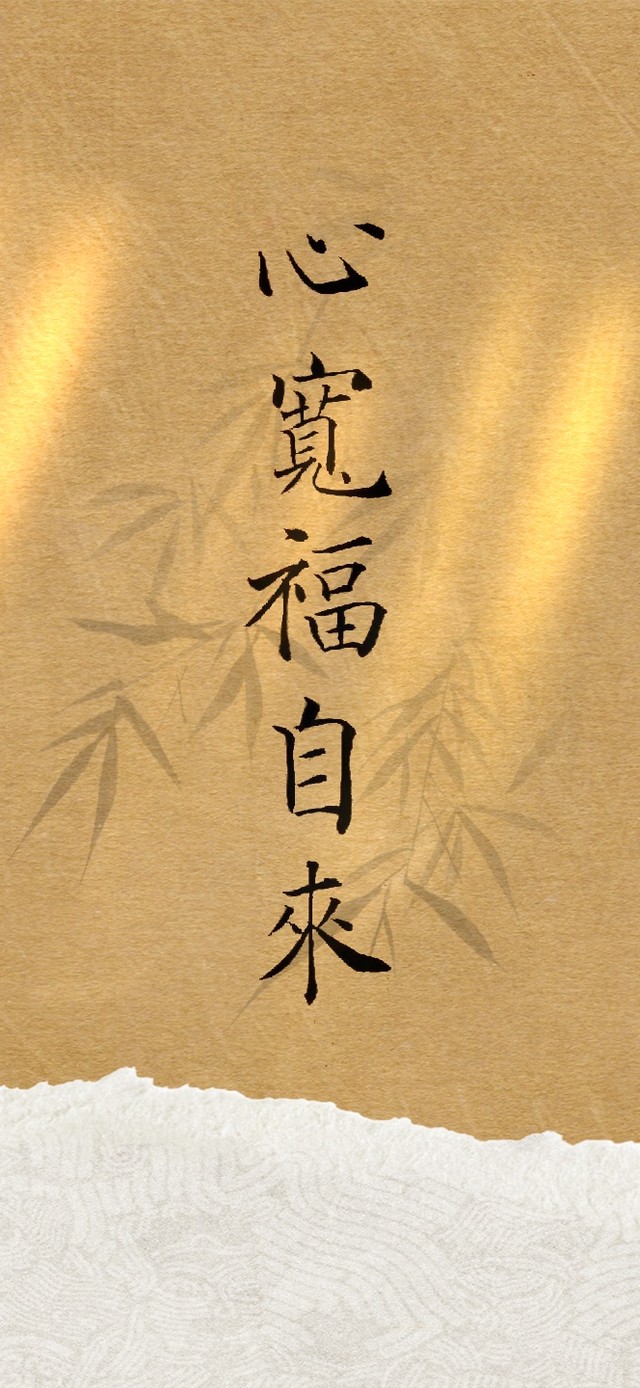 心寬福自來